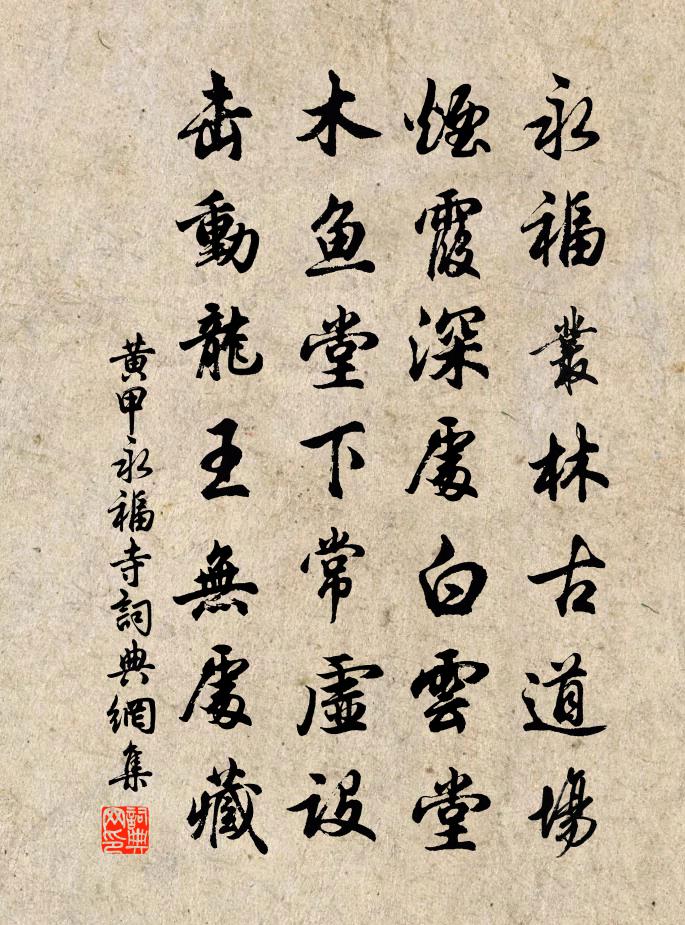 永福叢林古道場
煙霞深處白雲堂
木魚堂下常虛設
擊動龍王無處藏
黃甲永福寺詞典網集
詞典網印